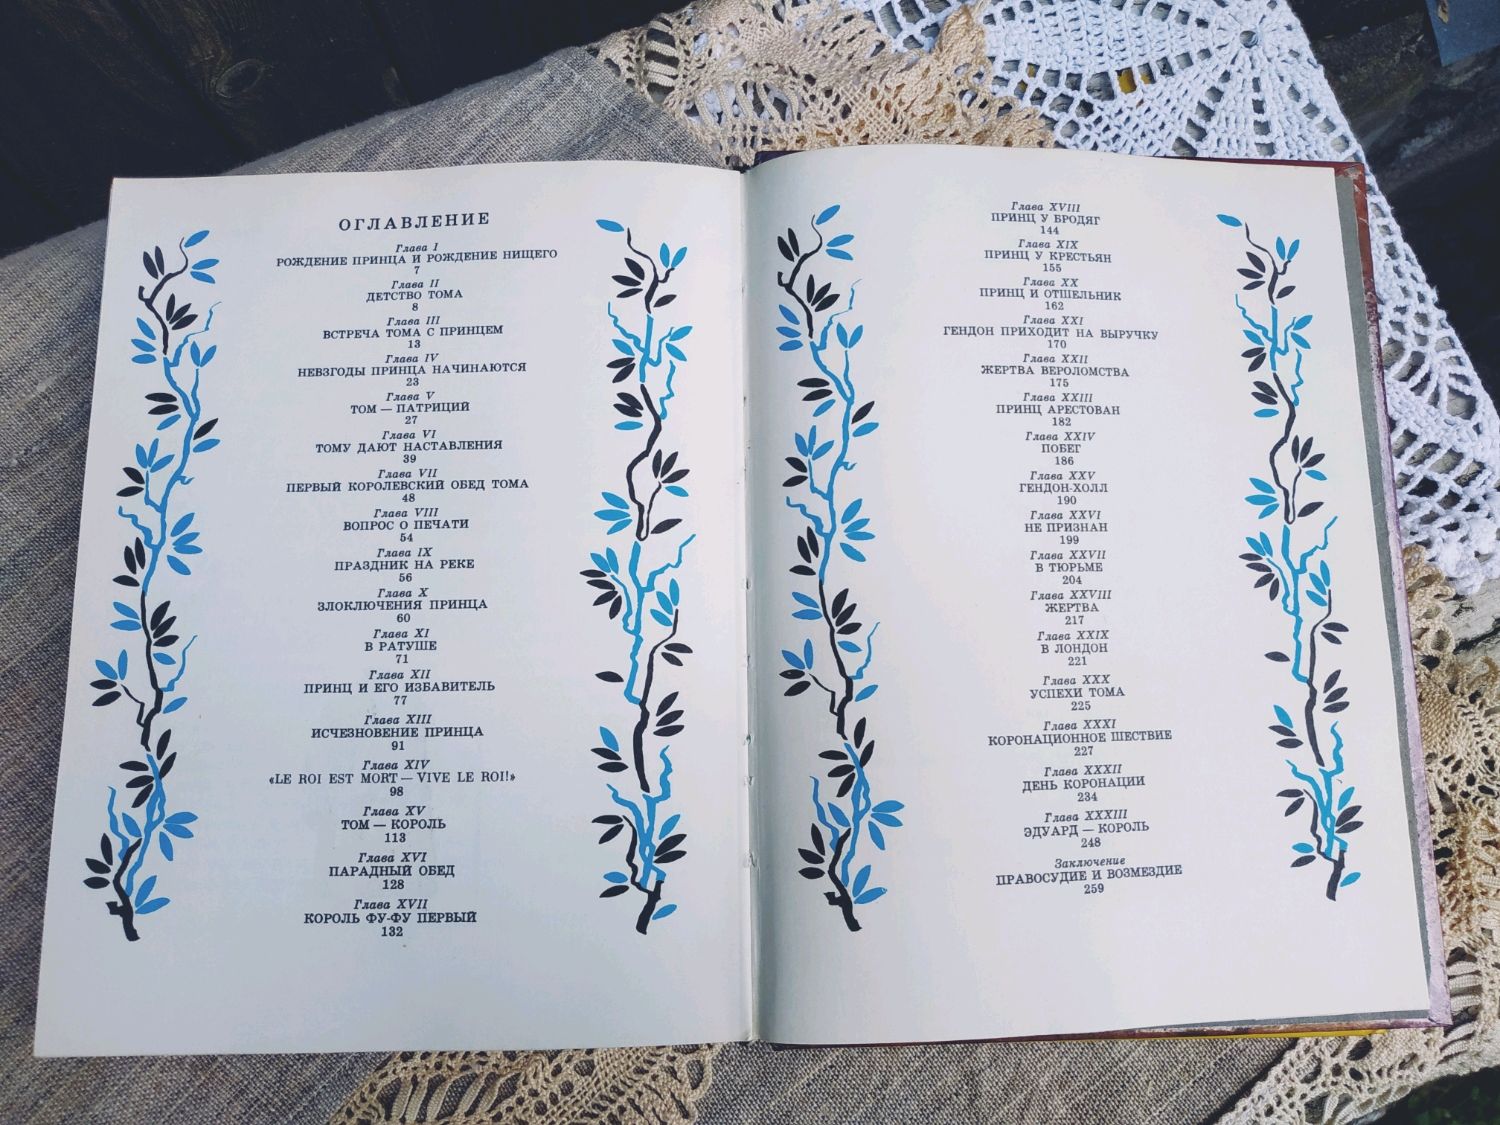 ОГЛАВЛЕНИЕ
Глава I
РОЖДЕНИЕ ПРИНЦА И РОЖДЕНИЕ НИЩЕГО
7
Глава II
ДЕТСТВО ТОМА
8
Глава III
ВСТРЕЧА ТОМА С ПРИНЦЕМ
13
Глава IV
НЕВЗГОДЫ ПРИНЦА НАЧИНАЮТСЯ
23
Глава V
ТОМ — ПАТРИЦИЙ
27
Глава VI
ТОМУ ДАЮТ НАСТАВЛЕНИЯ
39
Глава VII
ПЕРВЫЙ КОРОЛЕВСКИЙ ОБЕД ТОМА
48
Глава VIII
ВОПРОС О ПЕЧАТИ
54
Глава IX
ПРАЗДНИК НА РЕКЕ
56
Глава X
ЗЛОКЛЮЧЕНИЯ ПРИНЦА
60
Глава XI
В РАТУШЕ
71
Глава XII
ПРИНЦ И ЕГО ИЗБАВИТЕЛЬ
77
Глава XIII
ИСЧЕЗНОВЕНИЕ ПРИНЦА
91
Глава XIV
«LE ROI EST MORT — VIVE LE ROI!»
98
Глава XV
ТОМ — КОРОЛЬ
113
Глава XVI
ПАРАДНЫЙ ОБЕД
128
Глава XVII
КОРОЛЬ ФУ-ФУ ПЕРВЫЙ
132
Глава XVIII
ПРИНЦ У БРОДЯГ
144
Глава XIX
ПРИНЦ У КРЕСТЬЯН
155
Глава XX
ПРИНЦ И ОТШЕЛЬНИК
162
Глава XXI
ГЕНДОН ПРИХОДИТ НА ВЫРУЧКУ
170
Глава XXII
ЖЕРТВА ВЕРОЛОМСТВА
175
Глава XXIII
ПРИНЦ АРЕСТОВАН
182
Глава XXIV
ПОБЕГ
186
Глава XXV
ГЕНДОН-ХОЛЛ
190
Глава XXVI
НЕ ПРИЗНАН
199
Глава XXVII
В ТЮРЬМЕ
204
Глава XXVIII
ЖЕРТВА
217
Глава XXIX
В ЛОНДОН
221
Глава XXX
УСПЕХИ ТОМА
225
Глава XXXI
КОРОНАЦИОННОЕ ШЕСТВИЕ
227
Глава XXXII
ДЕНЬ КОРОНАЦИИ
234
Глава XXXIII
ЭДУАРД — КОРОЛЬ
248
Заключение
ПРАВОСУДИЕ И ВОЗМЕЗДИЕ
259